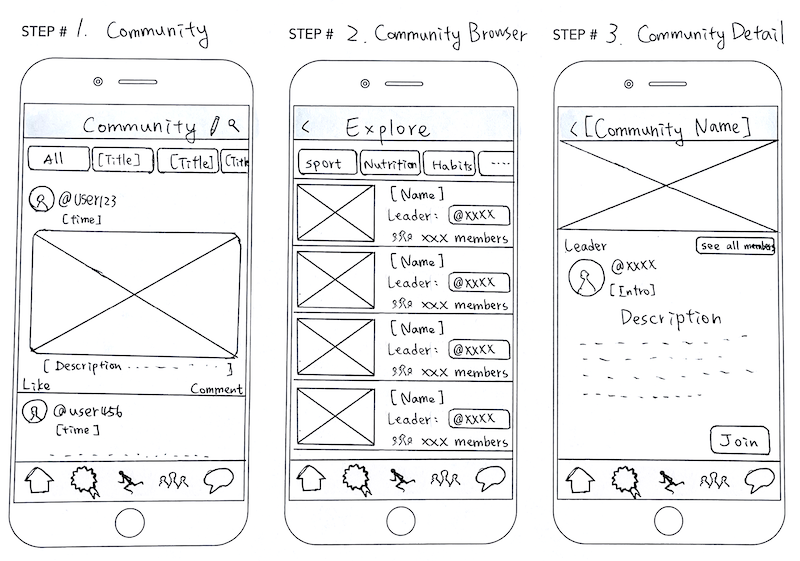 STEP # 1. Community
Community
All [Title] [Title] [Title
@user123
[time]
[Description ]
Like Comment
@user456
[time]
STEP # 2. Community Browser
< Explore
sport Nutrition Habits ....
[Name]
Leader: @XXXX
XXX members
[Name]
Leader: @XXXX
XXX members
[Name]
Leader: @XXXX
XXX members
[Name]
Leader: @XXXX
XXX members
STEP # 3. Community Detail
< [Community Name]
Leader see all members
@XXXX
[Intro]
Description
Join